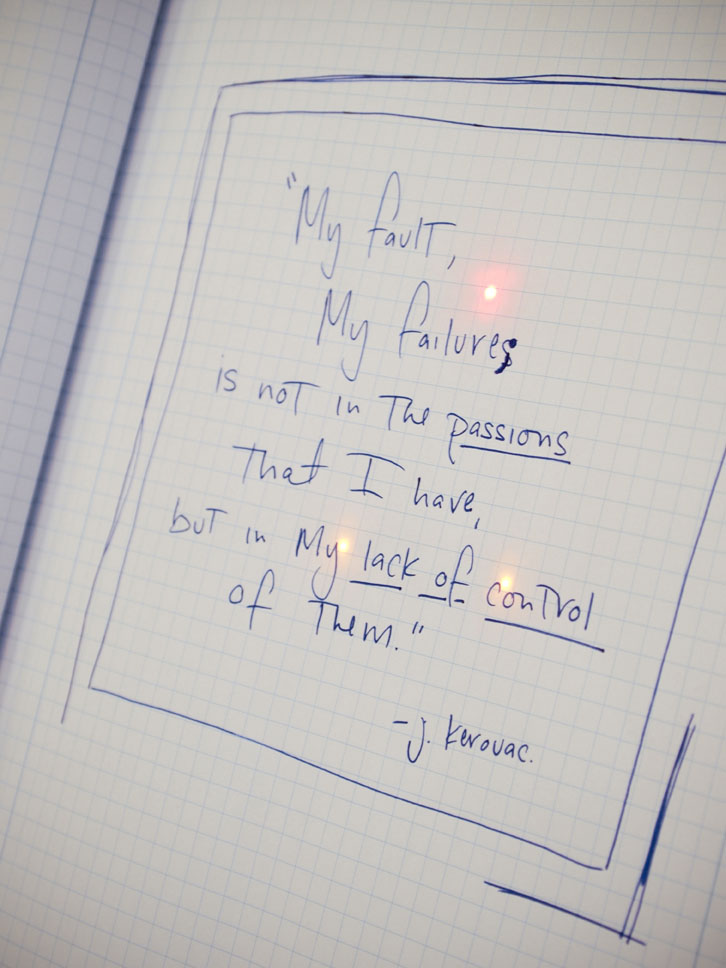 "My fault,
My failure,
is not in The passions
That I have,
but in My lack of control
of Them."
-J. Kerouac.